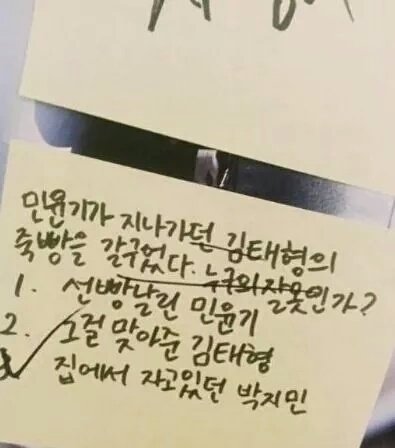 민윤기가 지나가던 김태형의
죽빵을 갈구었다. 누구의 잘못인가?
1. 선빵날린 민윤기
2. 그걸 맞아준 김태형
집에서 자고있던 박지민